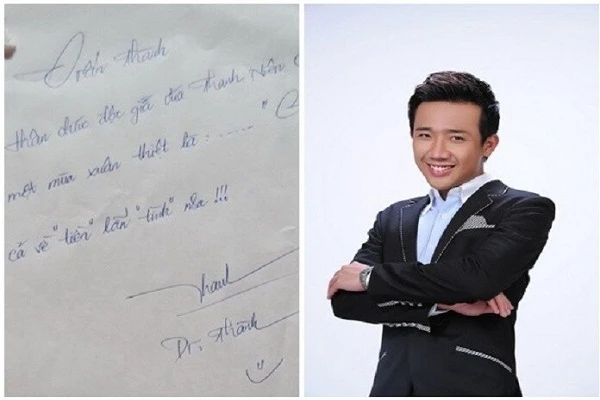 Trấn thành
thân chúc độc giả của Thanh Niên
một mùa xuân thiệt là : ...... "
cả về "tiền" lẫn "tình" nữa !!!
Thành
Dr. thành